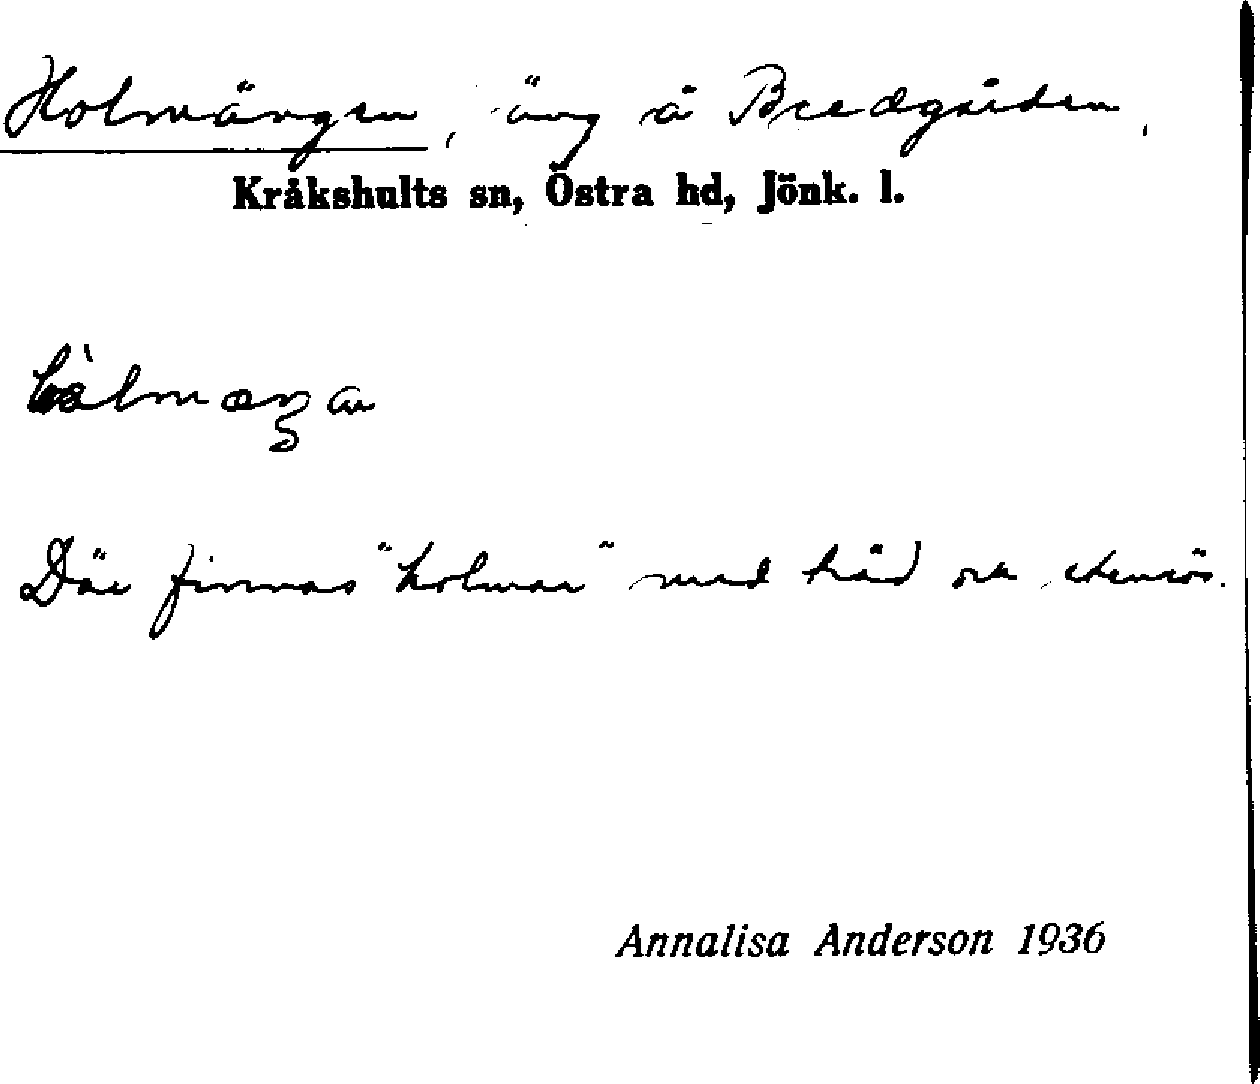 Holmängen, äng å Bredgården,
Kråkshults sn, Östra hd, Jönk. l.
Där finnas "holmar" med träd och stenrös.
Annalisa Anderson 1936